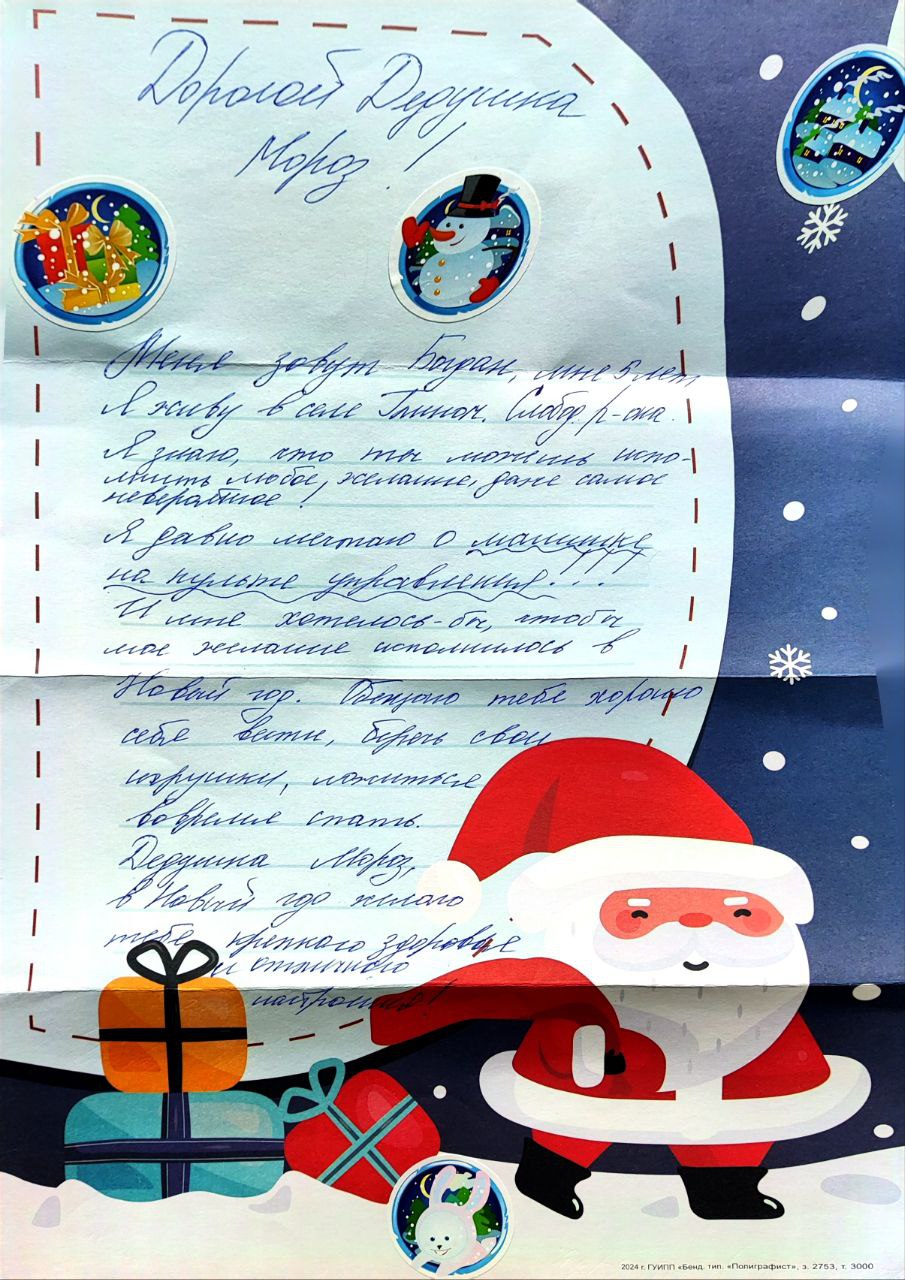 Дорогой Дедушка
Мороз!
Меня зовут Богдан, мне 5 лет
Я живу в селе Глиное. Слобод. р-она.
Я знаю, что ты можешь испо-
лнить любое желание, даже самое
невероятное!
Я давно мечтаю о машинке
на пульте управления...
И мне хотелось-бы, чтобы
мое желание исполнилось в
Новый год. Обещаю тебе хорошо
себя вести, беречь свои
игрушки, ложиться
вовремя спать.
Дедушка Мороз,
в Новый год желаю
тебе крепкого здоровье
и отличного
настроения!
2024 г. ГУИПП «Бенд. тип. «Полиграфист», з. 2753, т. 3000